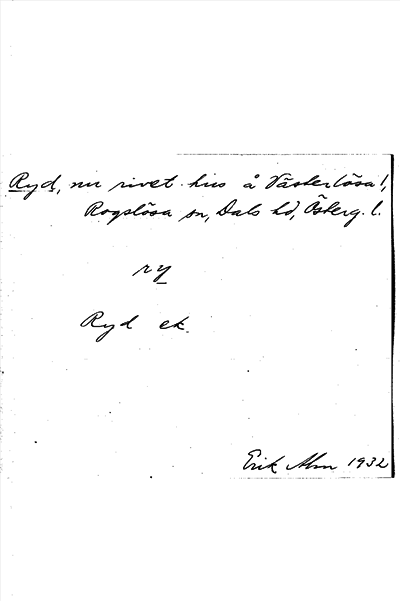 Ryd, nu rivet hus å Västerlösa l,
Rogslösa sn, Dals hd, Österg. l.
ry
Ryd ek.
Erik Alm 1932